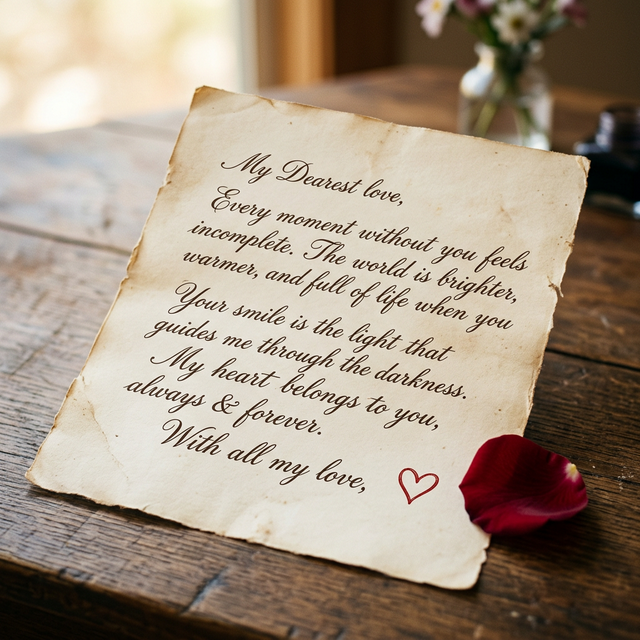 My Dearest love,
Every moment without you feels
incomplete. The world is brighter,
warmer, and full of life when you
Your smile is the light that
guides me through the darkness.
My heart belongs to you,
always & forever.
With all my love,